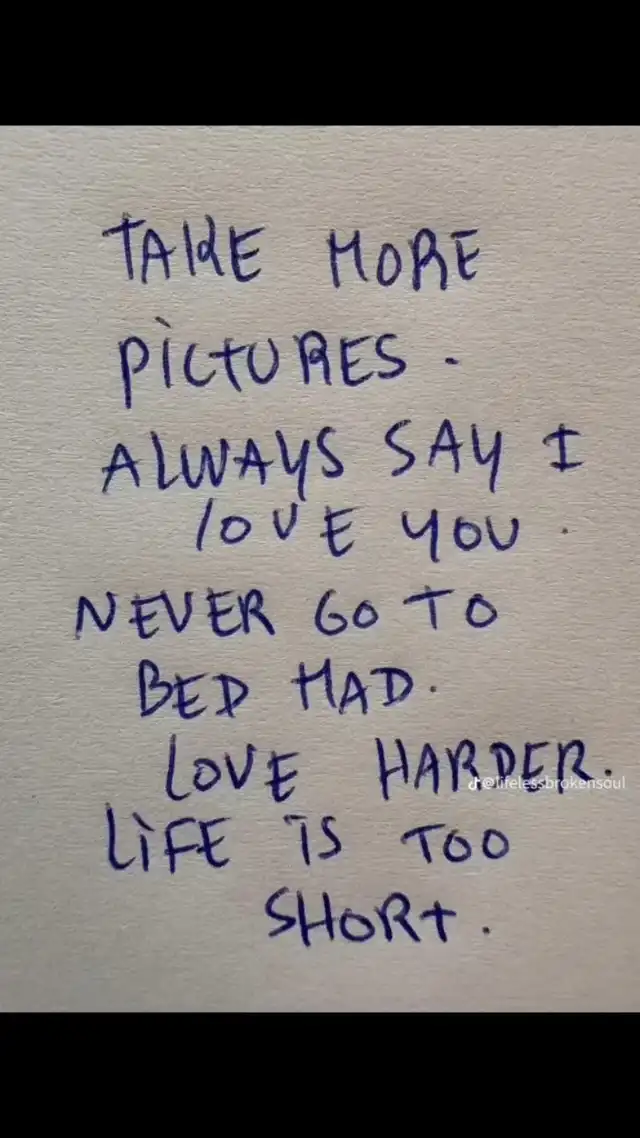 TAKE MORE
PiCtURES.
ALWAYS SAY I
lOVE YOU.
NEVER GO TO
BED MAD.
LOVE HARDER.
@lifelessbrokensoul
LiFE iS TOO
SHORt.